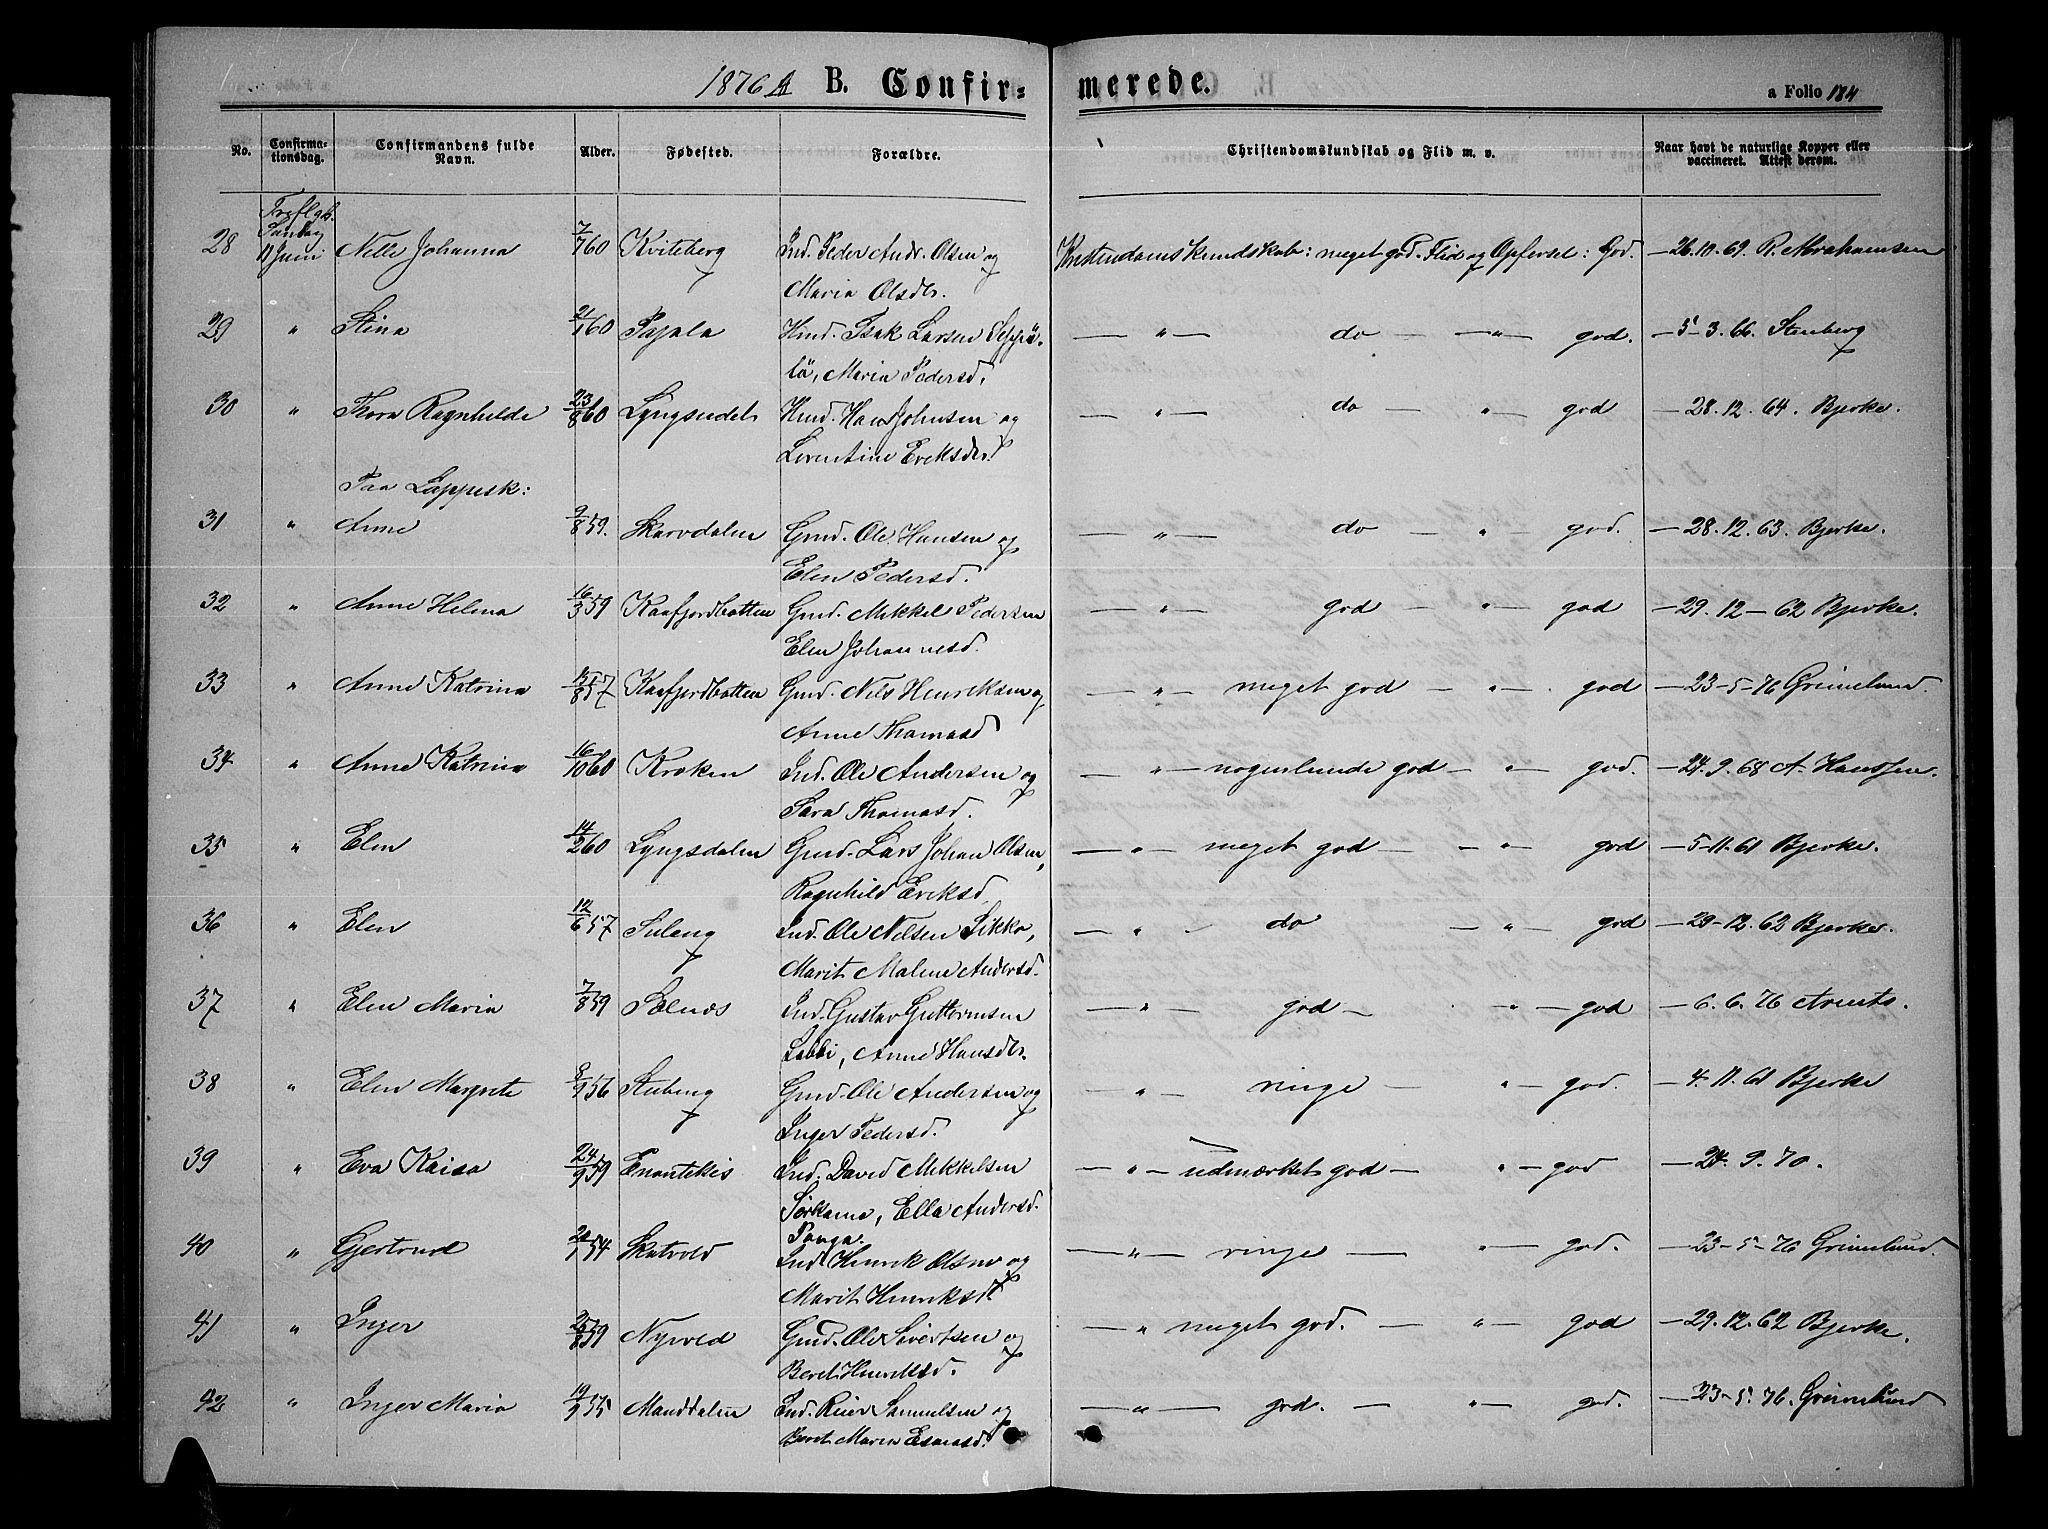 1876 A B. Confirmerede. a Folio 184
No. Confirmationsdag. Confirmandens fulde Navn. Alder. Fødested. Forældre. Christendomskundskab og Flid m. v. Naar havt de naturlige Kopper eller vaccineret. Attest derom.
Trefligh.
Søndag
28 11 Juni Nelle Johanna 7/7 60 Kviteberg Ind. Peder Andr. Olsen og Kristendomskundskab: meget god. Flid og Opførsel: God. — 26.10.69. R. Abrahamsen
Maria Olsdtr.
29 " Stina 2/1 60 Pajala Kind. Isak Larsen Seppä- — " — do — — " — god. — 5-3.66. Stenberg
lä, Maria Pedersd.
30 " Thora Ragnhilde 23/8 60 Lyngseidet Hans Johnsen og — " — do — " — god — 28.12.64. Bjerke.
Lorentine Ericksdtr.
Paa Lappesk:
31 " Anne 9/8 59. Skarvdalen Gmd. Ole Hansen og — " — do — " — god. — 28.12.63. Bjerke.
Elen Pedersd.
32 " Anne Helena 16/3 59 Kaafjordbotten Gmd. Mikkel Pedersen — " — god — " — god — 29.12-62 Bjerke.
Elen Johannesd.
33 " Anne Katrina 15/8 57 Kaafjordbotten Gmd. Nils Henriksen og — " — meget god — " — god — 23-5-76 Grimelund.
Anne Thomasd
34 " Anne Katrina 16/10 60 Kroken Ind. Ole Andersen og — " — nogenlunde god — " — god. — 24.9.68 A. Hanssen.
Sara Thomasd.
35 " Elen 14/2 60 Lyngsdalen Gmd. Lars Johan Olsen, — " — meget god — " — god — 5-11.61 Bjerke.
Ragnhild Ericksd.
36 " Elen 12/6 57 Ind. Ole Nilsen Sikko, — " — do — " — god — 29-12.62 Bjerke.
Marit Malene Andersd.
37 " Elen Maria 7/8 59 Solnøs Ind. Gustav Guttormsen — " — god — " — god — 6.6.76 Arents.
Labbi, Anne Hansdtr.
38 " Elen Margrete 8/9 56 Steveng Gmd. Ole Andersen og — " — ringe — " — god. — 4.11.61 Bjerke
Inger Pedersd.
39 " Eva Kaisa 24/9 59 Enontekis Ind. David Mikkelsen — " — udmærket god — " — god — 24.9.70.
Siikavuo, Ella Andersd.
Panga.
40 " Gjertrud 20/1 54 Skatvold Ind Henrik Olsen og — " — ringe — " — god. — 23-5-76 Grimelund.
Marit Henriksdtr
41 " Inger 25/8 59 Nyvold Gmd. Ole Sivertsen og — " meget god. — " — god — 29.12.62 Bjerke.
Beret Henriksd.
42 " Inger Maria 19/9 55 Manddalen Ind. Reier Samuelsen og — " — god. — " — god. — 23-5.76. Grimelund
Berit Maria Esaiasd.